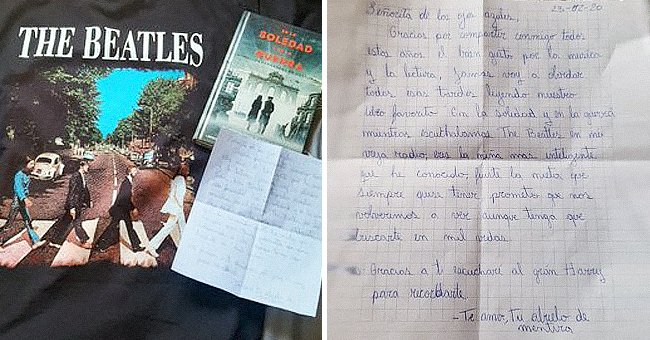 THE BEATLES
SOLEDAD
GUERRA
23-02-20
Señorita de los ojos azules,
Gracias por compartir conmigo todos
estos años el buen gusto por la musica
y la lectura, Jamas voy a olvidar
todas esas tardes leyendo nuestro
libro favorito En la soledad y en la guerra
mientras escuchabamos The Beatles en mi
vieja radio, eres la niña mas inteligente
que he conocido, fuiste la nieta que
siempre quise tener, prometo que nos
volveremos a ver aunque tenga que
buscarte en mil vidas
Gracias a ti escuchare al gran Harry
para recordarte.
- Te amo, Tu abuelo de
mentira